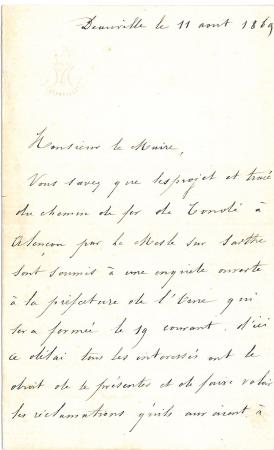 Deauville le 11 aout 1869
Monsieur le Maire,
Vous savez que les projet et tracé
du chemin de fer de Condé à
Alençon par le Mesle sur Sarthe
sont soumis à une enquête ouverte
à la préfecture de l'Orne qui
sera fermée le 19 courant. d'ici
ce délai tous les interessés ont le
droit de se présenter et de faire valoir
les réclamations qu'ils auraient à